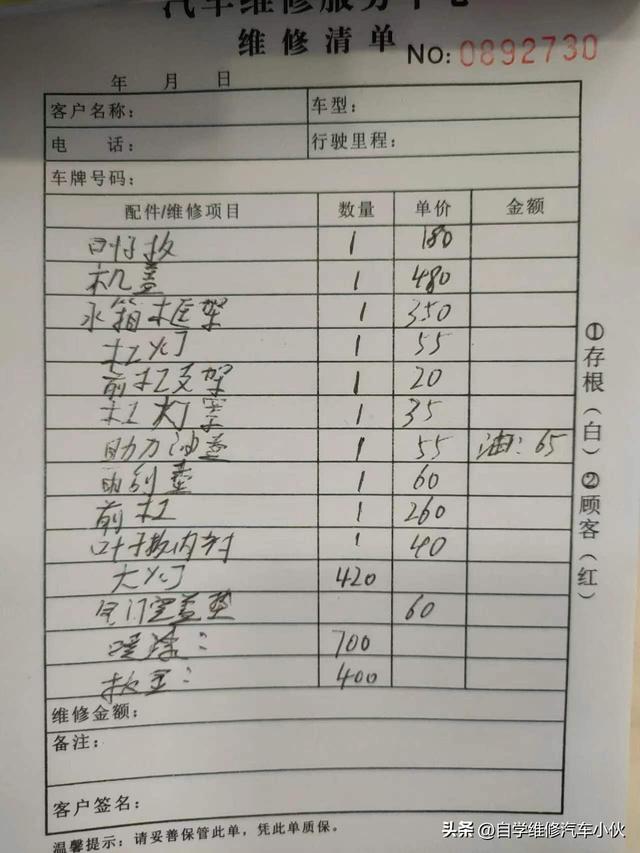 汽车维修服务中心
维修清单
NO: 0892730
年 月 日
客户名称: 车型:
电 话: 行驶里程:
车牌号码:
配件/维修项目 数量 单价 金额
叶子板 1 180
机盖 1 480
水箱框架 1 350
杠灯 1 55
前杠支架 1 20
杠灯罩 1 35
助力油壶 1 55 油: 65
1 60
前杠 1 260
叶子板内衬 1 40
大灯 420
气门室盖垫 60
喷漆: 700
钣金: 400
维修金额:
备注:
客户签名:
温馨提示: 请妥善保管此单, 凭此单质保。
①存根(白)②顾客(红)
头条 @自学维修汽车小伙